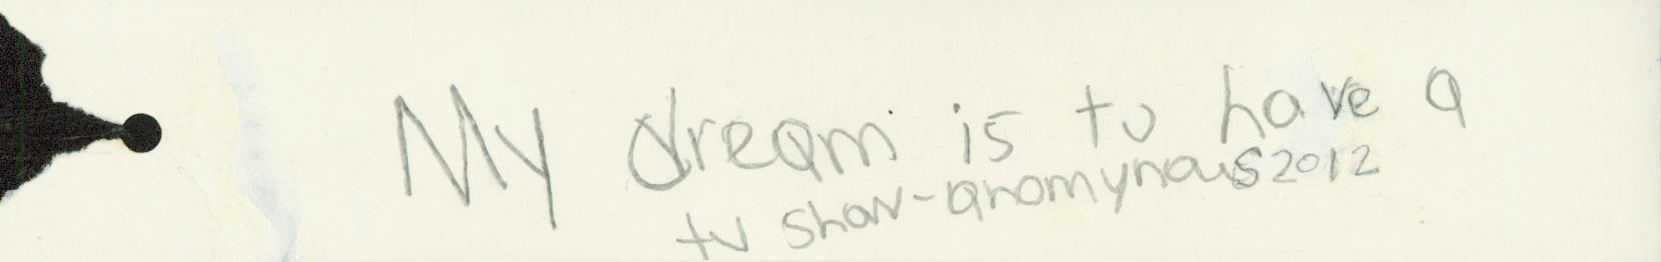 My dream is to have a
tv show-anomynous 2012